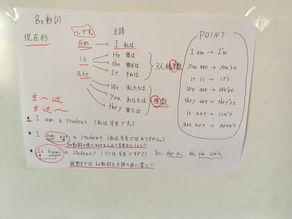 Be動詞
現在形
〜です。
主語
am → I 私は
is
He 彼は
She 彼女は
It それは
3人称単数
are
We 私たちは
You あなたは
they 彼らは
複数
主へ〜
主述〜
・I am a student. (私は学生です。)
・I am not a student (私は学生ではありません。)
・Is hami a student? Yes, she is. No, she isn't.
疑問文では be動詞を主語の前に置く!!
POINT
I am → I'm
you are → you're
it is → it's
We are → We're
they are → they're
is not → isn't
are not → aren't